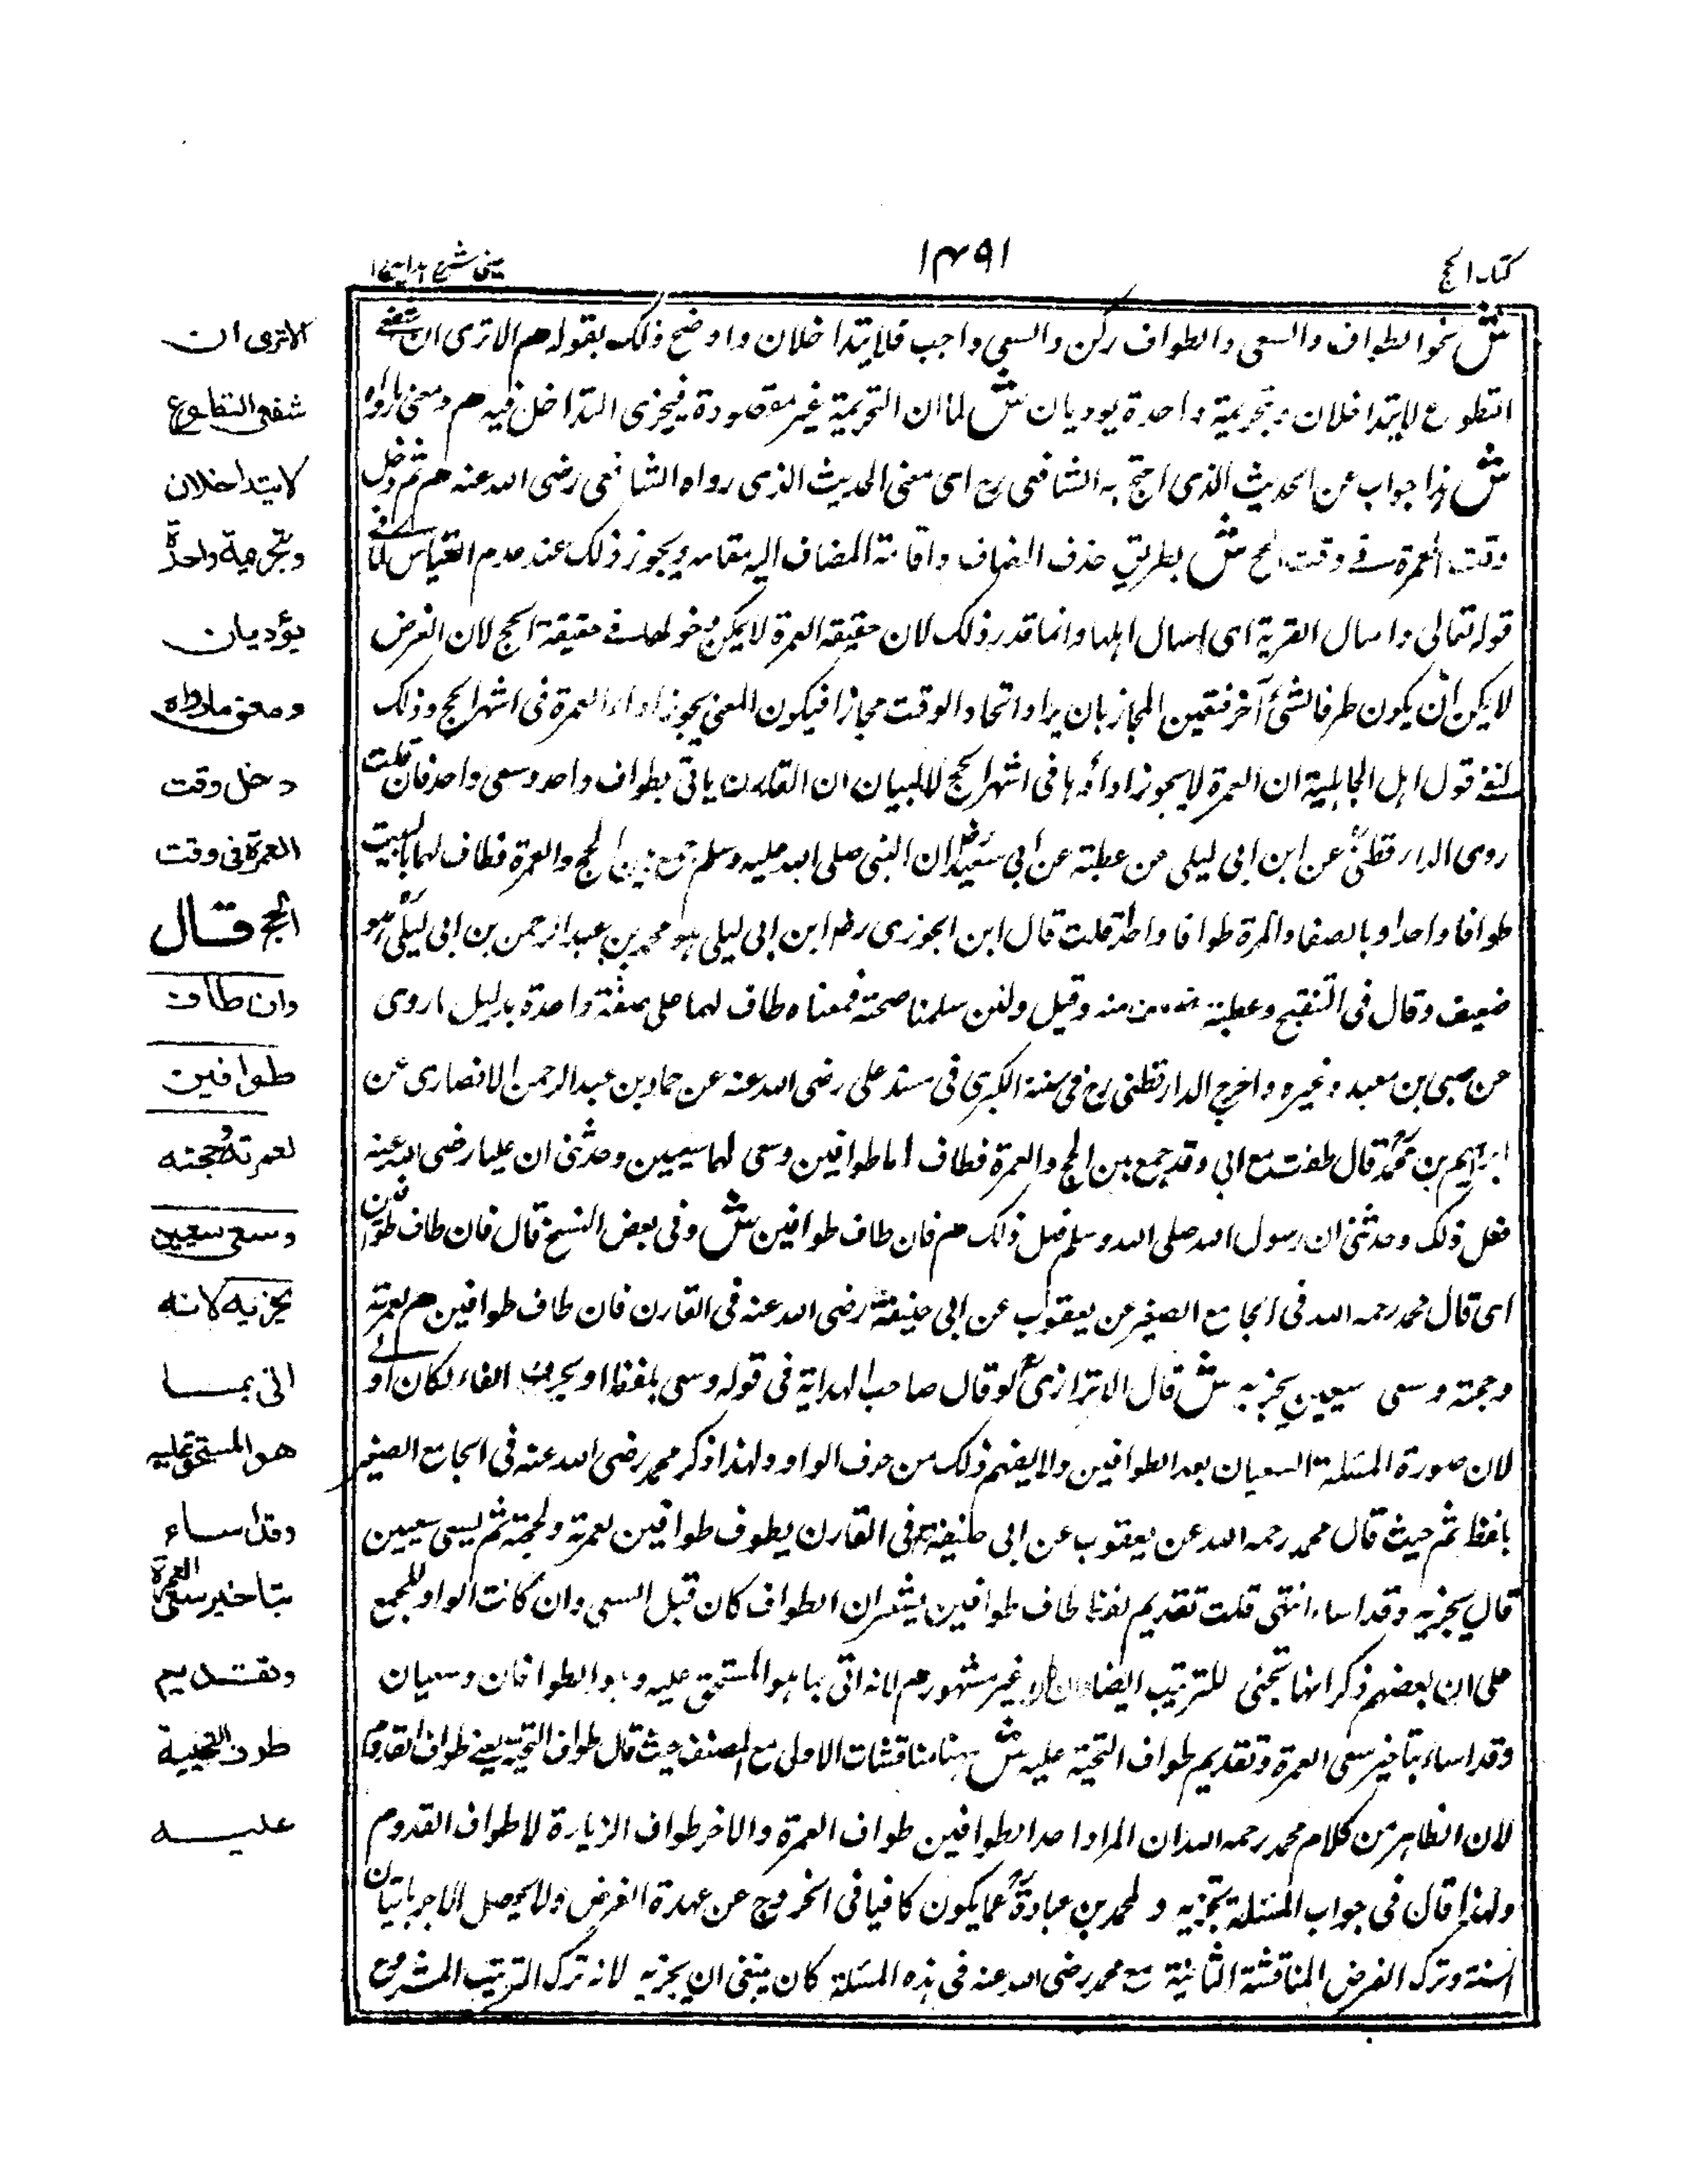 كتاب الحج
١٤٩١
عينى شرح هدايه ج١
ش نحو الطواف والسعى والطواف ركن والسعى واجب فلا يتداخلان واوضح ذلك بقوله م الا ترى ان شفعى
التطوع لا يتداخلان وبتحريمة واحدة يوديان ش لما ان التحريمة غير مقصودة فيجزى التداخل فيه م ومعنى ما رواه
ش هذا جواب عن الحديث الذى احتج به الشافعى رح اى معنى الحديث الذى رواه الشافعى رضى الله عنه م ثم دخل
وقت العمرة فى وقت الحج ش بطريق حذف المضاف واقامة المضاف اليه مقامه ويجوز ذلك عند عدم القياس كما فى
قوله تعالى واسال القرية اى اسال اهلها وانما قدر ذلك لان حقيقة العمرة لا يمكن دخولها فى حقيقة الحج لان العرض
لا يمكن ان يكون ظرفا لشئ آخر فتعين المجاز بان يراد اتحاد الوقت مجازا فيكون المعنى يجوز اداء العمرة فى اشهر الحج وذلك
لنفى قول اهل الجاهلية ان العمرة لا يجوز اداؤها فى اشهر الحج لا لبيان ان القارن ياتى بطواف واحد وسعى واحد فان قلت
روى الدارقطنى عن ابن ابى ليلى عن عطية عن ابى سعيد ان النبى صلى الله عليه وسلم جمع بين الحج والعمرة فطاف لهما بالبيت
طوافا واحدا وبالصفا والمروة طوافا واحدا قلت قال ابن الجوزى رح ابن ابى ليلى هو محمد بن عبد الرحمن بن ابى ليلى هو
ضعيف وقال فى التنقيح وعطية اضعف منه وقيل ولئن سلمنا صحته فمعناه طاف لهما على صفة واحدة بدليل ما روى
عن صبى ابن معبد وغيره واخرج الدارقطنى رح فى سننه الكبرى فى مسند على رضى الله عنه عن حماد بن عبد الرحمن الانصارى عن
ابراهيم بن محمد قال طفت مع ابى وقد جمع بين الحج والعمرة فطاف لهما طوافين وسعى لهما سعيين وحدثنى ان عليا رضى الله عنه
فعل ذلك وحدثنى ان رسول الله صلى الله وسلم فعل ذلك م فان طاف طوافين ش وفى بعض النسخ قال فان طاف طوافين
اى قال محمد رحمه الله فى الجامع الصغير عن يعقوب عن ابى حنيفة رضى الله عنه فى القارن فان طاف طوافين م لعمرته
وحجته وسعى سعيين يجزيه ش قال الاترازى لو قال صاحب الهداية فى قوله وسعى بلفظ او بحرف الفاء لكان اولى
لان صورة المسئلة السعيان بعد الطوافين ولا يفهم ذلك من حرف الواو ولهذا ذكر محمد رضى الله عنه فى الجامع الصغير
بلفظ ثم حيث قال محمد رحمه الله عن يعقوب عن ابى حنيفة فى القارن يطوف طوافين لعمرته ولحجته ثم يسعى سعيين
قال يجزيه وقد اساء انتهى قلت تقديم لفظ طاف طوافين يشعر ان الطواف كان قبل السعى وان كانت الواو للجمع
على ان بعضهم ذكر انها تجئ للترتيب ايضا غير مشهور م لانه اتى بما هو المستحق عليه وهو الطوافان وسعيان
وقد اساء بتاخير سعى العمرة وتقديم طواف التحية عليه ش هنا مناقشات الاولى مع المصنف حيث قال طواف التحية يعنى طواف القدوم
لان الظاهر من كلام محمد رحمه الله ان المراد احد الطوافين طواف العمرة والاخر طواف الزيارة لا طواف القدوم
ولهذا قال فى جواب المسئلة يجزيه و عما يكون كافيا فى الخروج عن عهدة الفرض ولا يحصل الاجر باتيان
السنة وترك الفرض المناقشة الثانية مع محمد رضى الله عنه فى هذه المسئلة كان ينبغى ان يجزيه لانه ترك الترتيب المشروع
الا ترى ان
شفعى التطوع
لا يتداخلان
وبتحريمة واحدة
يؤديان
ومعنى ما رواه
دخل وقت
العمرة فى وقت
الحج قال
وان طاف
طوافين
لعمرته وحجته
وسعى سعيين
يجزيه لانه
اتى بما
هو المستحق عليه
وقد اساء
بتاخير سعى العمرة
وتقديم
طواف التحية
عليه